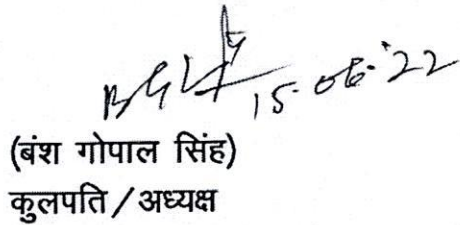 15.06.'22
(बंश गोपाल सिंह)
कुलपति / अध्यक्ष